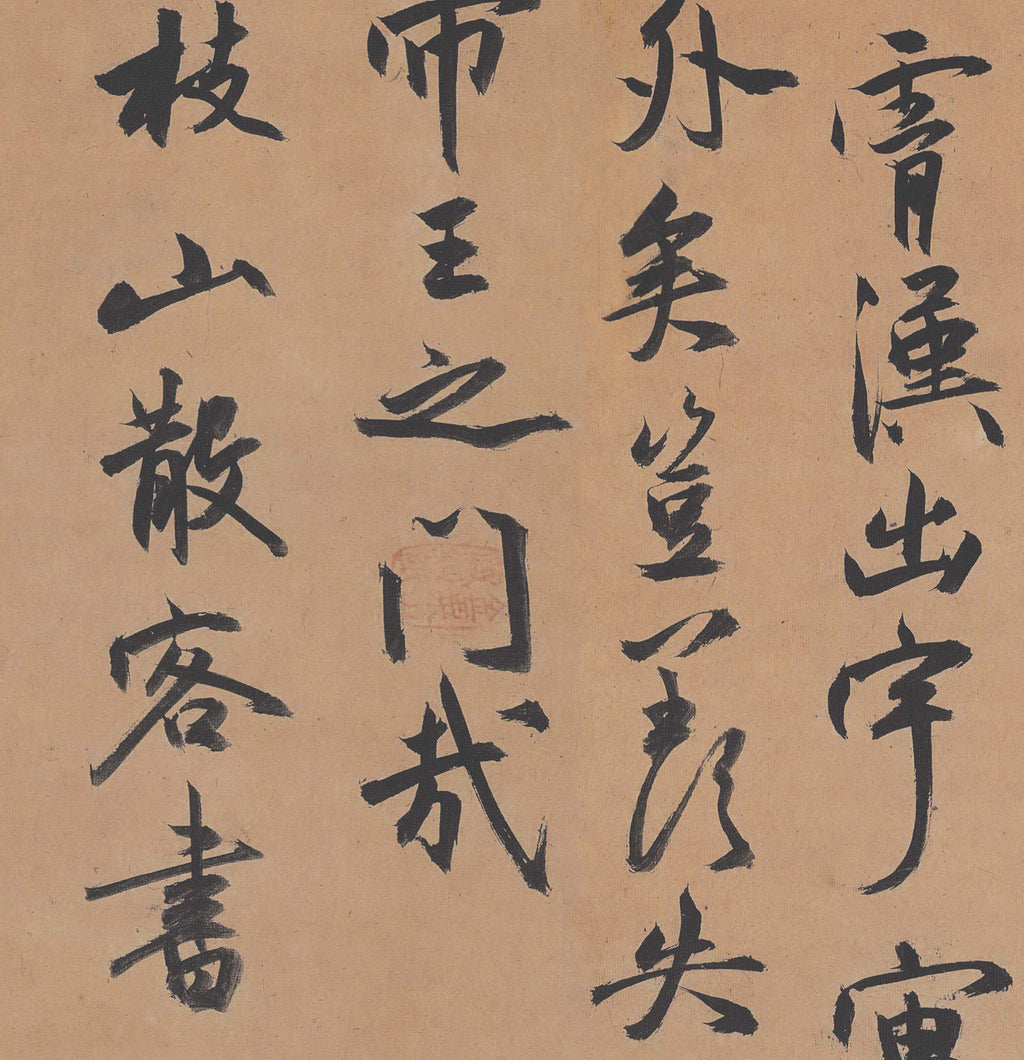 霄漢出宇宙
外矣豈羨夫
帝王之門哉
枝山散客書